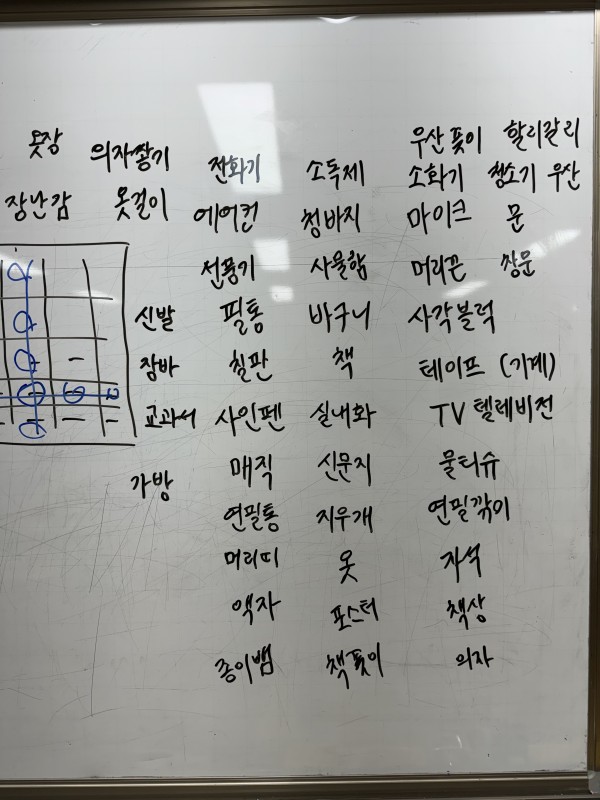 옷장 의자쌓기
장난감 옷걸이
신발
잠바
교과서
가방
전화기
에어컨
선풍기
필통
칠판
사인펜
매직
연필통
머리띠
액자
종이뱀
소독제
청바지
사물함
바구니
책
실내화
신문지
지우개
옷
포스터
책꽂이
우산꽂이 할리갈리
소화기 청소기 우산
마이크 문
머리끈 창문
사각블럭
테이프 (기계)
TV 텔레비전
물티슈
연필깎이
자석
책상
의자